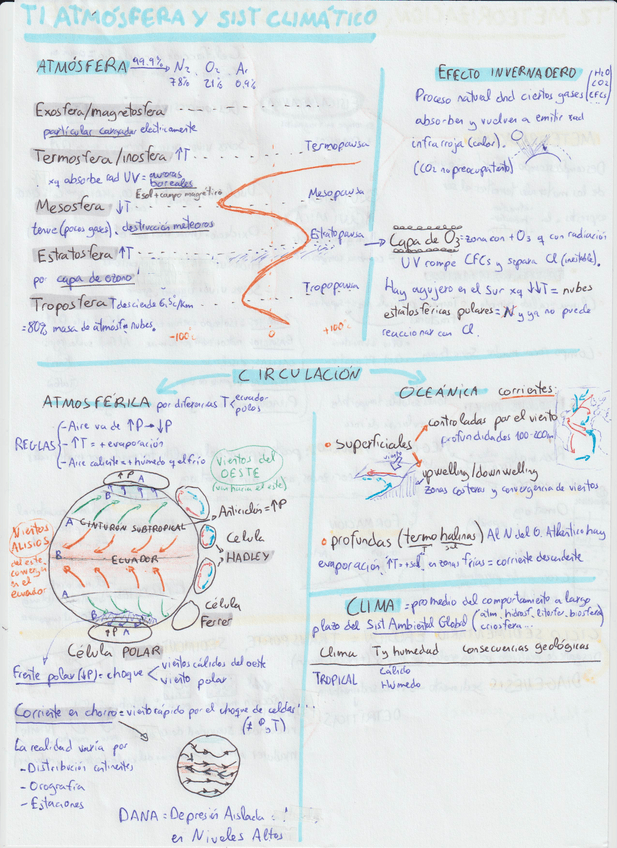 T1 ATMÓSFERA Y SIST CLIMÁTICO
ATMÓSFERA 99.9% → N₂ O₂ A₁
78% 21% 0,9%
Exosfera/magnetosfera
partículas cargadas eléctricamente
Termopausa
Termosfera/Ionosfera ↑T
xq absorbe rad UV = auroras boreales
E sol + campo magnético
Mesopausa
Mesosfera ↓T
tenue (pocos gases). destrucción meteoros
Estratopausa
Estratosfera ↑T
por capa de ozono
Tropopausa
Troposfera T desciende 6,5°C/km
= 80% masa de atmósf y nubes.
-100° 0 +100°
EFECTO INVERNADERO
(H₂O CO₂ CFCs)
Proceso natural dnd ciertos gases
absorben y vuelven a emitir rad
infrarroja (calor).
(CO₂ no preocupante)
Capa de O₃ = zona con + O₃ q con radiación
UV rompe CFCs y separa Cl (inevitable).
Hay agujero en el Sur xq ↓↓T = nubes
estratosféricas polares = N y ya no puede
reaccionar con Cl.
CIRCULACIÓN
ATMOSFÉRICA por diferencias T ecuador
polos
REGLAS
- Aire va de ↑P → ↓P
- ↑T = + evaporación
- Aire caliente = + húmedo y el frío
Vientos del
OESTE
(van hacia el este)
↑P A
B B
Anticiclón = ↑P
A CINTURÓN SUBTROPICAL
Vientos
ALISIOS
del este
convergen
en el
ecuador
Celula
HADLEY
B ECUADOR B
A A
Célula
Ferrer
B
↑P A
Célula POLAR
Frente polar (↓P) = choque
vientos cálidos del oeste
viento polar
Corriente en chorro = viento rápido por el choque de celdas
(≠ P, T)
La realidad varía por
- Distribución continentes
- Orografía
- Estaciones
DANA = Depresión Aislada
en Niveles Altos
OCEÁNICA corrientes
superficiales
controladas por el viento
profundidades 100-200m
viento
upwelling/downwelling
zonas costeras y convergencia de vientos
profundas (termohalinas) Al N del O. Atlántico hay
sal
evaporación, ↑T · + sal en zonas frías = corriente descendente
CLIMA = promedio del comportamiento a largo
plazo del Sist Ambiental Global (atm, hidrosf, litosfer, biosfera,
criosfera...
Clima T y humedad consecuencias geológicas
TROPICAL Cálido
Húmedo